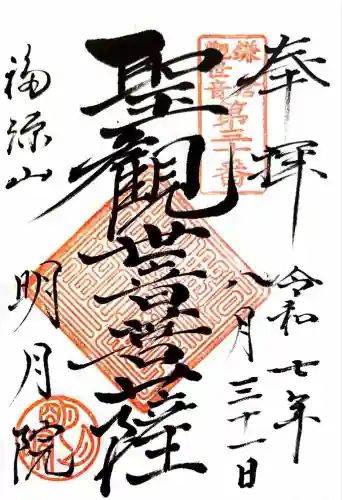 奉拝
令和七年
八月三十一日
鎌倉
觀世音
第三十番
聖觀世音菩薩
福源山
明月院